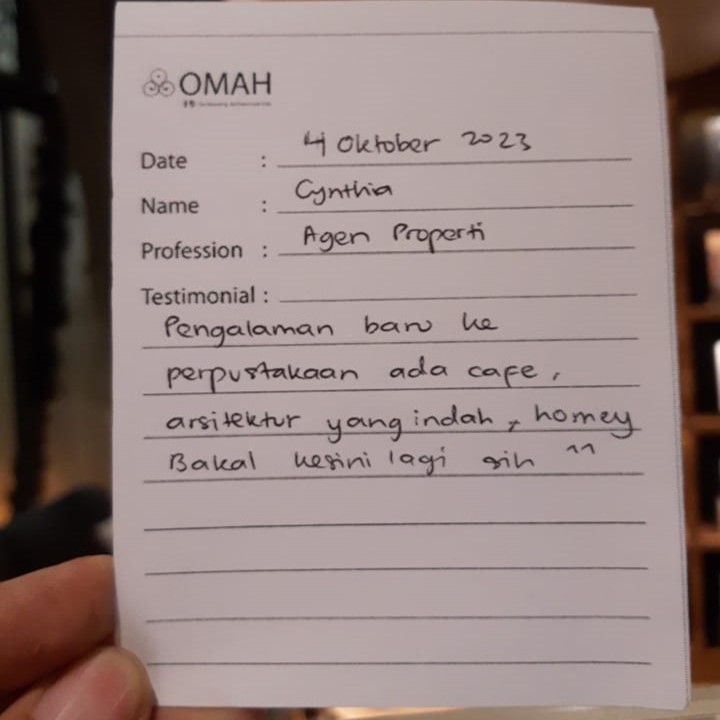 OMAH
Date : 4 Oktober 2023
Name : Cynthia
Profession : Agen Properti
Testimonial :
Pengalaman baru ke
perpustakaan ada cafe,
arsitektur yang indah, homey
Bakal kesini lagi sih ^^